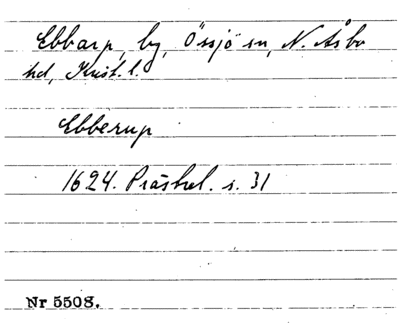 Ebbarp, by, Össjö sn, N. Åsbo
hd, Krist. l.
Ebberup
1624. Prästrel. s. 31
Nr 5508.